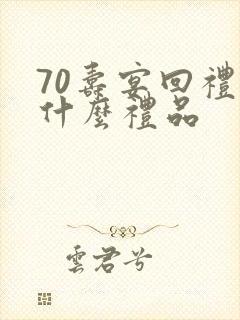 70壽宴回禮
什麼禮品
雲君兮